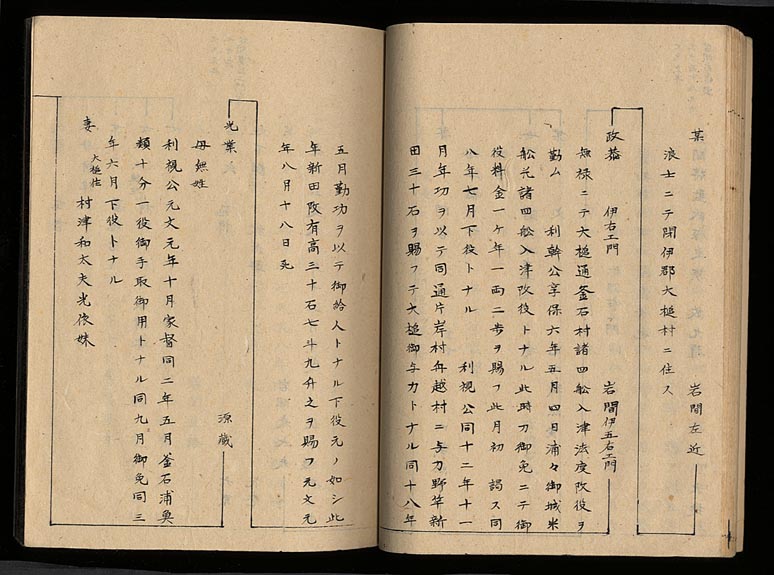 某 岩間左近
浪士ニテ閉伊郡大槌村ニ住ス
政恭 伊右エ門 岩間伊五右エ門
無禄ニテ大槌通釜石村諸四舩入津法度改役ヲ
勤ム 利幹公享保六年五月四日浦々御城米
舩并諸四舩入津改役トナル此時刀御免ニテ御
役料金一ケ年一両二歩ヲ賜フ此月初 謁ス同
八年七月下役トナル 利視公同十二年十一
月年功ヲ以テ同通片岸村舟越村ニ与力野竿新
田三十石ヲ賜フテ大槌御与力トナル同十八年
五月勤功ヲ以テ御給人トナル下役元ノ如シ此
年新田改有高三十石七斗九升之ヲ賜フ元文元
年八月十八日死
光業 源蔵
母無姓
利視公元文元年十月家督同二年五月釜石浦奥
類十分一役御手取御用トナル同九月御免同三
年六月下役トナル
妻 大槌住 村津和太夫光依妹